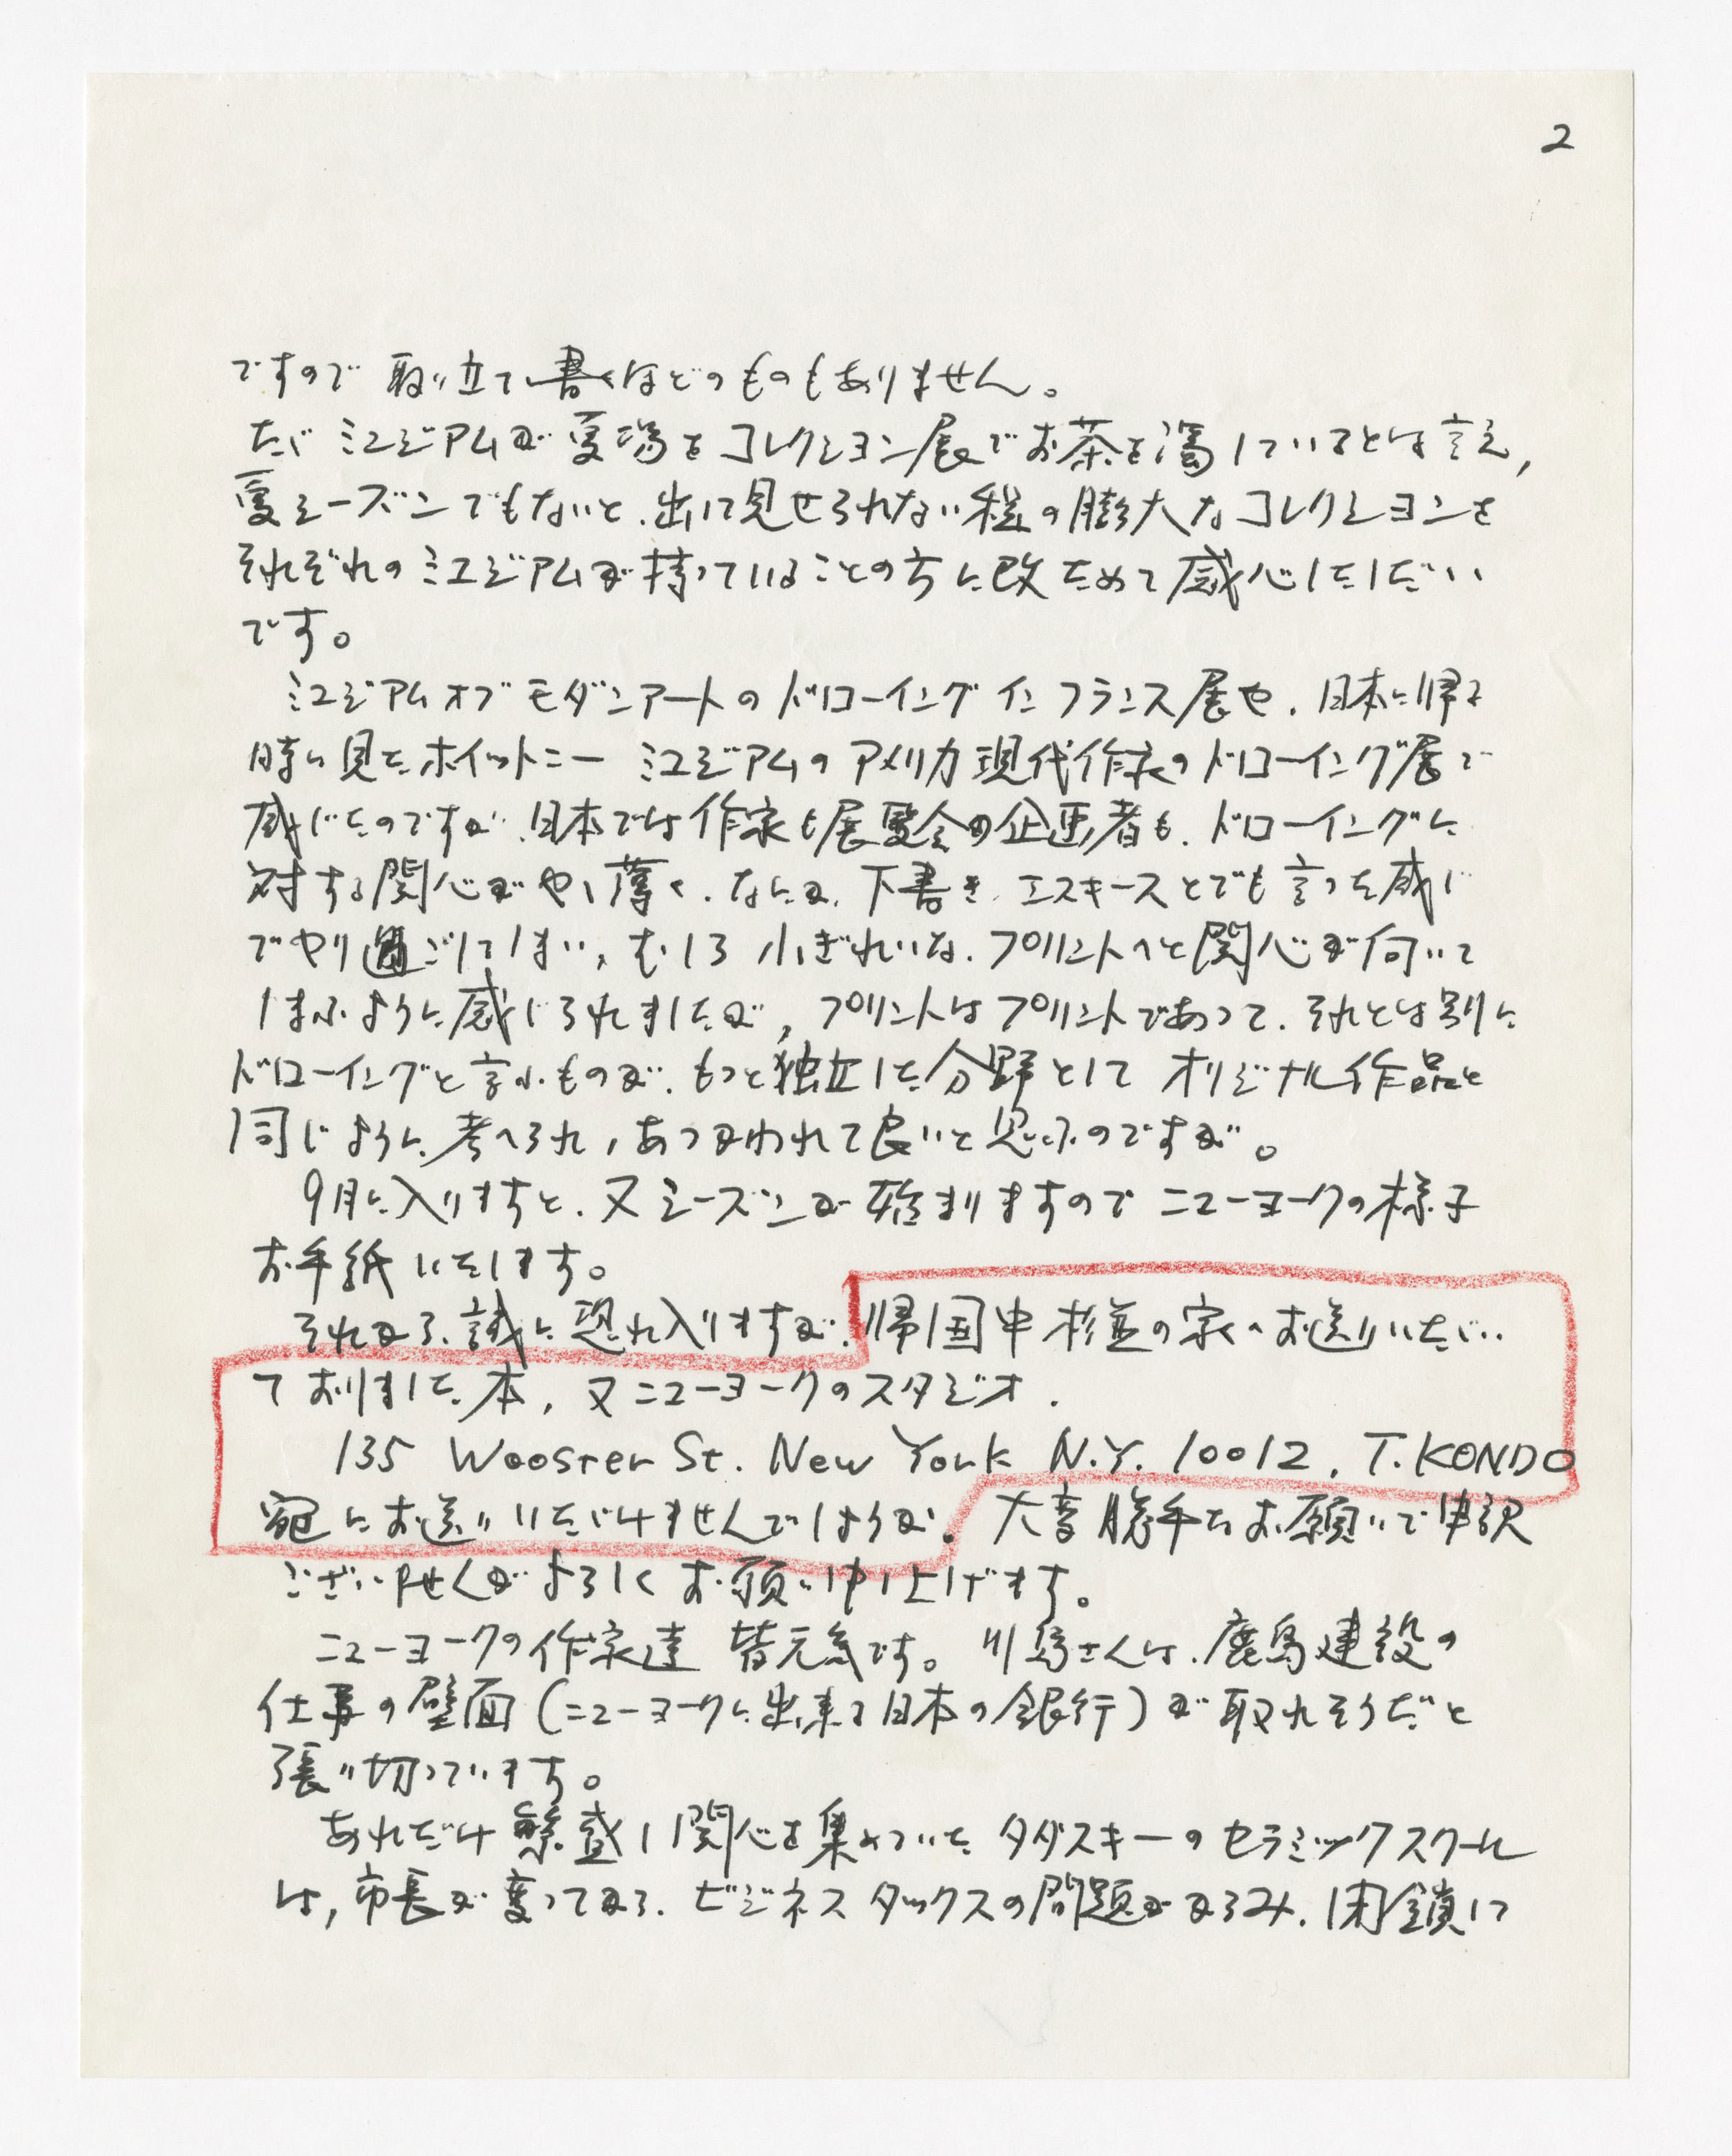 2
ですので取り立て書くほどのものもありません。
ただミユジアムが夏場をコレクション展でお茶を濁しているとは言え,
夏シーズンでもないと、出して見せられない程の膨大なコレクションを
それぞれのミユジアムが持っていることの方に改ためて感心したしだい
です。
ミユジアムオブモダンアートのドローイングインフランス展や、日本に帰る
時に見たホイットニーミユジアムのアメリカ現代作家のドローイング展で
感じたのですが、日本では作家も展覧会の企画者も、ドローイングに
対する関心がやゝ薄く、なにか、下書き、エスキースとでも言った感じ
でやり過ごしてしまい、むしろ小ぎれいな、プリントへと関心が向いて
しまふように感じられましたが、プリントはプリントであって、それとは別に
ドローイングと言ふものが、もっと独立した分野としてオリジナル作品と
同じように考へられ,あつかわれて良いと思ふのですが。
9月に入りますと、又シーズンが始まりますのでニューヨークの様子
お手紙いたします。
それから、誠に恐れ入りますが、帰国中杉並の家へお送りいただい
ておりました本、又ニューヨークのスタジオ、
135 Wooster St. New York N.Y. 10012, T. KONDO
宛にお送りいただけませんでしょうか。大変勝手なお願いで申訳
ございませんがよろしくお願い申し上げます。
ニューヨークの作家達皆元気です。川島さんは、鹿島建設の
仕事の壁面(ニューヨークに出来る日本の銀行)が取れそうだと
張り切っています。
あれだけ繁盛し関心を集めていたタダスキーのセラミックスクール
は,市長が変ってから、ビジネスタックスの問題がからみ、閉鎖して